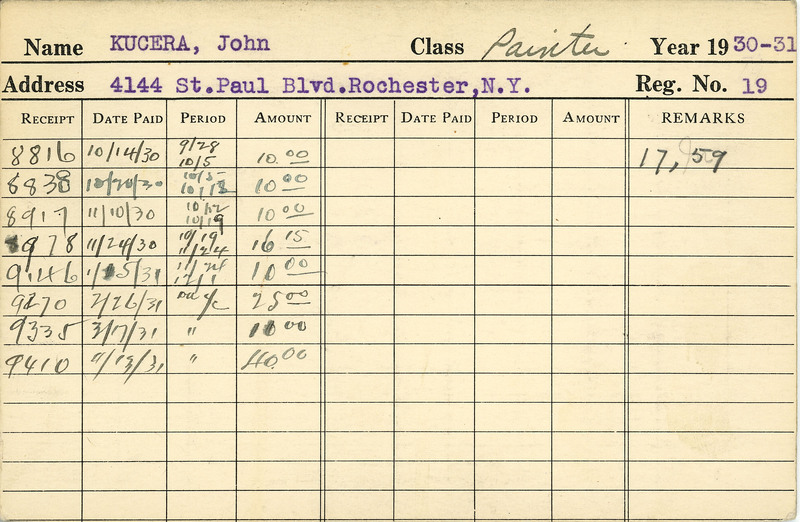 Name KUCERA, John Class Painter Year 19 30-31
Address 4144 St.Paul Blvd.Rochester,N.Y. Reg. No. 19
RECEIPT DATE PAID PERIOD AMOUNT RECEIPT DATE PAID PERIOD AMOUNT REMARKS
8816 10/14/30 9/28 10/5 10.00 17,59
8838 10/20/30 10/5 10/12 10.00
8917 11/10/30 10/12 10/19 10.00
8978 11/24/30 10/19 11/24 16.15
9146 1/15/31 11/24 12/1 10.00
9270 2/26/31 25.00
9335 3/17/31 " 10.00
9410 "/13/31 " 40.00